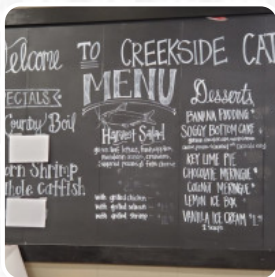 Welcome TO CREEKSIDE CAT
MENU
SPECIALS
Country Boil
orn Shrimp
Whole Catfish
Harvest Salad
with grilled chicken
with grilled salmon
with grilled shrimp
Desserts
BANANA PUDDING
SOGGY BOTTOM CAKE
KEY LIME PIE
CHOCOLATE MERINGUE
COCONUT MERINGUE
LEMON ICE BOX
VANILLA ICE CREAM
2 Scoops